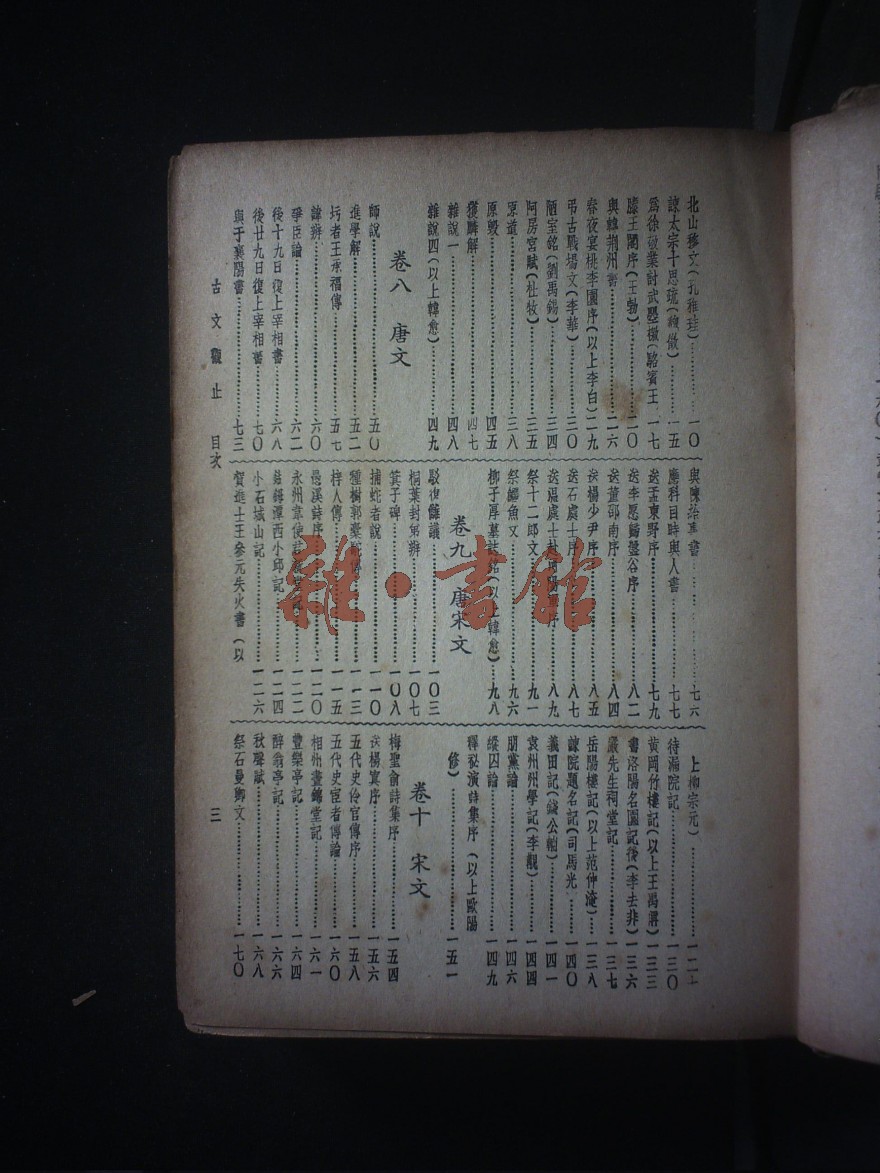 北山移文(孔稚珪)……一〇
諫太宗十思疏(魏徵)……一五
為徐敬業討武曌檄(駱賓王 一七
滕王閣序(王勃)……二〇
與韓荊州書……二六
春夜宴桃李園序(以上李白)二九
弔古戰場文(李華)……三〇
陋室銘(劉禹錫)……三四
阿房宮賦(杜牧)……三五
原道……三八
原毀……四五
獲麟解……四七
雜說一……四八
雜說四(以上韓愈)……四九
卷八 唐文
師說……五〇
進學解……五二
圬者王承福傳……五七
諱辨……六〇
爭臣論……六二
後十九日復上宰相書……六八
後廿九日復上宰相書……七〇
與于襄陽書……七三
與陳給事書……七六
應科目時與人書……七七
送孟東野序……七九
送李愿歸盤谷序……八二
送董邵南序……八四
送楊少尹序……八五
送石處士序……八七
送溫處士赴河陽軍序……八九
祭十二郎文……九一
祭鱷魚文……九六
柳子厚墓誌銘(以上韓愈)……九八
卷九 唐宋文
駁復讎議……一〇三
桐葉封弟辨……一〇七
箕子碑……一〇八
捕蛇者說……一一〇
種樹郭橐駝傳……一一三
梓人傳……一一五
愚溪詩序……一二〇
永州韋使君新堂記……一二二
鈷鉧潭西小邱記……一二四
小石城山記……一二六
賀進士王參元失火書(以
上柳宗元)……一二七
待漏院記……一三〇
黃岡竹樓記(以上王禹偁)一三三
書洛陽名園記後(李去非)一三六
嚴先生祠堂記……一三七
岳陽樓記(以上范仲淹)…一三八
諫院題名記(司馬光……一四〇
義田記(錢公輔)……一四一
袁州州學記(李覯)……一四四
朋黨論……一四六
縱囚論……一四九
釋祕演詩集序(以上歐陽
修)……一五一
卷十 宋文
梅聖俞詩集序……一五四
送楊寘序……一五六
五代史伶官傳序……一五八
五代史宦者傳論……一六〇
相州晝錦堂記……一六一
豐樂亭記……一六四
醉翁亭記……一六六
秋聲賦……一六八
祭石曼卿文……一七〇
古文觀止 目次
三
雜·書館